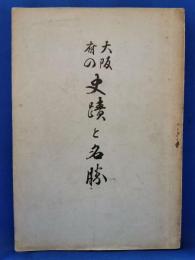 大阪府の
史蹟と名勝